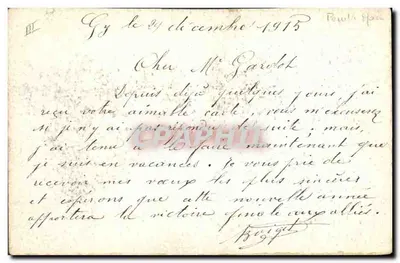 III
Gy le 29 décembre 1915
Cher Mr
Depuis déjà quelques jours j'ai
reçu votre aimable carte vous m'excuserez
si je n'y ai pas répondu de suite; mais,
j'ai tenu à le faire maintenant que
je suis en vacances. Je vous prie de
recevoir mes vœux les plus sincères
et espérons que cette nouvelle année
apportera la victoire finale aux alliés.
CPARAMA